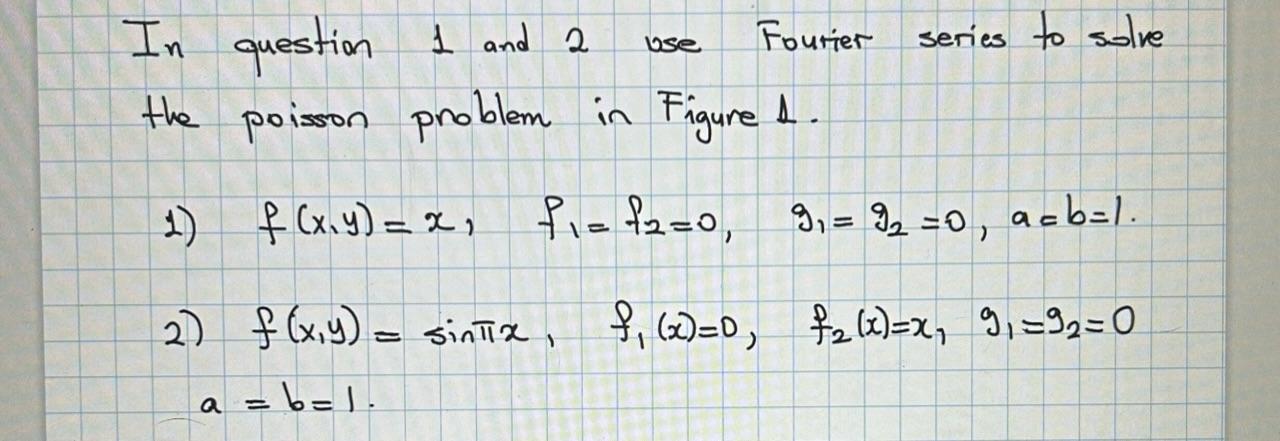 In question 1 and 2 use Fourier series to solve
the poisson problem in Figure 1.
1) f(x,y) = x, f₁ = f₂ = 0, g₁ = g₂ = 0, a = b = 1.
2) f(x,y) = sinπx, f₁(x) = 0, f₂(x) = x, g₁ = g₂ = 0
a = b = 1.